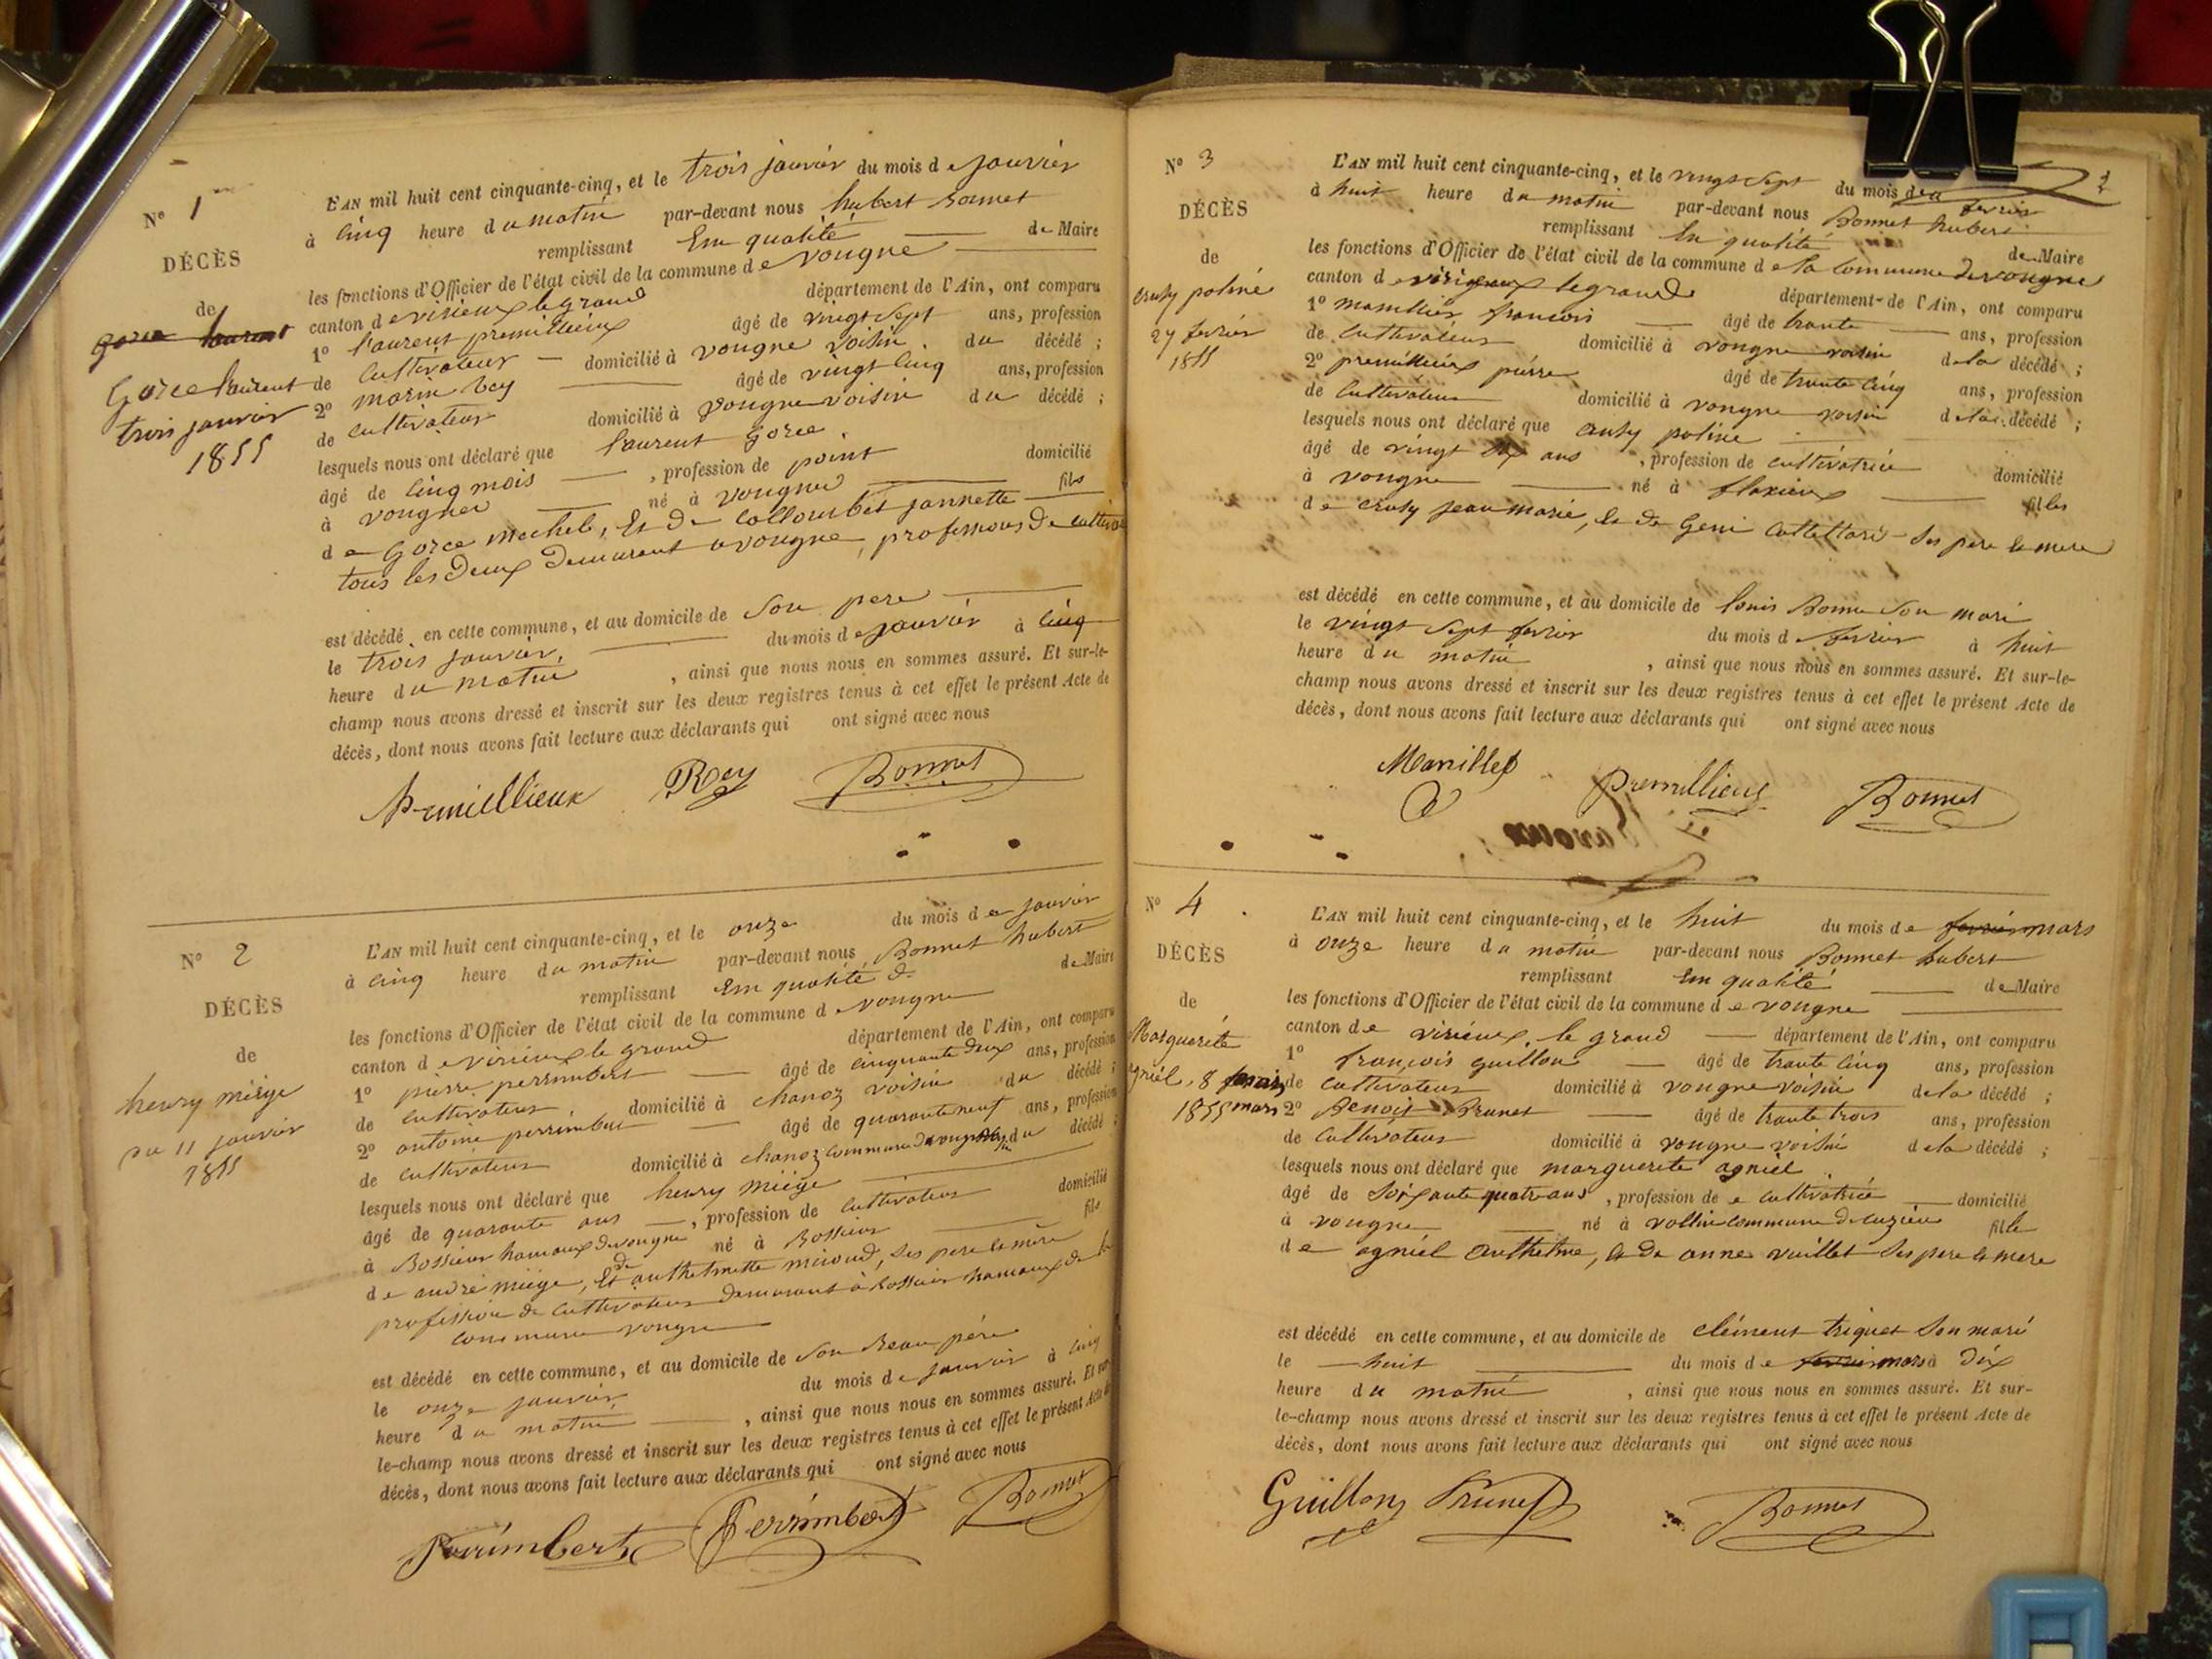 N° 1
DÉCÈS
de
gorce laurent
Gorce laurent
trois janvier
1855
L'AN mil huit cent cinquante-cinq, et le trois janvier du mois de janvier
à cinq heure du matin par-devant nous hubert Bonnet
remplissant Em qualité de Maire
les fonctions d'Officier de l'état civil de la commune de vongne
canton de virieux le grand département de l'Ain, ont comparu
1° laurent premillieux âgé de vingt sept ans, profession
de cultivateur domicilié à vongne voisin du décédé ;
2° marin Rey âgé de vingt cinq ans, profession
de cultivateur domicilié à vongne voisin du décédé ;
lesquels nous ont déclaré que laurent gorce
âgé de cinq mois , profession de point domicilié
à vongne né à vongne fils
de Gorce mechel, Et de Collombet jannette
tous les deux demurant a vongne, professions de cultiva
est décédé en cette commune, et au domicile de son pere
le trois janvier, du mois de janvier à cinq
heure du matin , ainsi que nous nous en sommes assuré. Et sur-le-
champ nous avons dressé et inscrit sur les deux registres tenus à cet effet le présent Acte de
décès, dont nous avons fait lecture aux déclarants qui ont signé avec nous
Premillieux Rey Bonnet
N° 2
DÉCÈS
de
henry miège
du 11 janvier
1855
L'AN mil huit cent cinquante-cinq, et le onze du mois de janvier
à cinq heure du matin par-devant nous Bonnet hubert
remplissant Em qualité de de Maire
les fonctions d'Officier de l'état civil de la commune de vongne
canton de virieux le grand département de l'Ain, ont comparu
1° pierre perrimbert âgé de cinquante deux ans, profession
de cultivateur domicilié à chanoz voisin du décédé ;
2° antoine perrimbert âgé de quarante neuf ans, profession
de cultivateur domicilié à chanoz commune de vongne du décédé ;
lesquels nous ont déclaré que henry miège
âgé de quarante ans , profession de cultivateur domicilié
à Bossieu hamaux de vongne né à Bossieu fils
de andré miège, Et de anthelmette miroud, ses pere le mère
profession de cultivateur demurant à Bossieu hamaux de la
commune vongne
est décédé en cette commune, et au domicile de son beau père
le onze janvier du mois de janvier à cinq
heure du matin , ainsi que nous nous en sommes assuré. Et sur-
le-champ nous avons dressé et inscrit sur les deux registres tenus à cet effet le présent Acte de
décès, dont nous avons fait lecture aux déclarants qui ont signé avec nous
Perrimbert Perrimbert Bonnet
2
N° 3
DÉCÈS
de
crusy poline
27 fevrier
1855
L'AN mil huit cent cinquante-cinq, et le vingt sept du mois de fevrier
à huit heure du matin par-devant nous Bonnet hubert
remplissant En qualité de Maire
les fonctions d'Officier de l'état civil de la commune de la commune de vongne
canton de virigeux legrand département de l'Ain, ont comparu
1° manillier francois âgé de trante ans, profession
de cultivateur domicilié à vongne voisin de la décédé ;
2° premillieux pierre âgé de trante cinq ans, profession
de cultivateur domicilié à vongne voisin de la décédé ;
lesquels nous ont déclaré que crusy poline
âgé de vingt six ans , profession de cultivatrice domicilié
à vongne né à flaxieux filles
de crusy jean marie, Et de Geni ses pere le mere
est décédé en cette commune, et au domicile de louis Bonne son mari
le vingt sept fevrier du mois de fevrier à huit
heure du matin , ainsi que nous nous en sommes assuré. Et sur-le-
champ nous avons dressé et inscrit sur les deux registres tenus à cet effet le présent Acte de
décès, dont nous avons fait lecture aux déclarants qui ont signé avec nous
Manillier Premillieux Bonnet
N° 4
DÉCÈS
de
Marguerite
agniel, 8 fevrier
1855 mars
L'AN mil huit cent cinquante-cinq, et le huit du mois de fevrier mars
à onze heure du matin par-devant nous Bonnet hubert
remplissant Em qualité de Maire
les fonctions d'Officier de l'état civil de la commune de vongne
canton de virieux, le grand département de l'Ain, ont comparu
1° françois guillon âgé de trante cinq ans, profession
de cultivateur domicilié à vongne voisin de la décédé ;
2° Benoit Brunet âgé de trante trois ans, profession
de cultivateur domicilié à vongne voisin de la décédé ;
lesquels nous ont déclaré que marguerite agniel
âgé de soixante quatre ans , profession de e cultivatrice domicilié
à vongne né à vollin commune de luzieu fille
de agniel anthelme, Et de anne vuillet ses pere le mere
est décédé en cette commune, et au domicile de clément triquet son mari
le huit du mois de fevrier mars à dix
heure du matin , ainsi que nous nous en sommes assuré. Et sur-
le-champ nous avons dressé et inscrit sur les deux registres tenus à cet effet le présent Acte de
décès, dont nous avons fait lecture aux déclarants qui ont signé avec nous
Guillon Brunet Bonnet